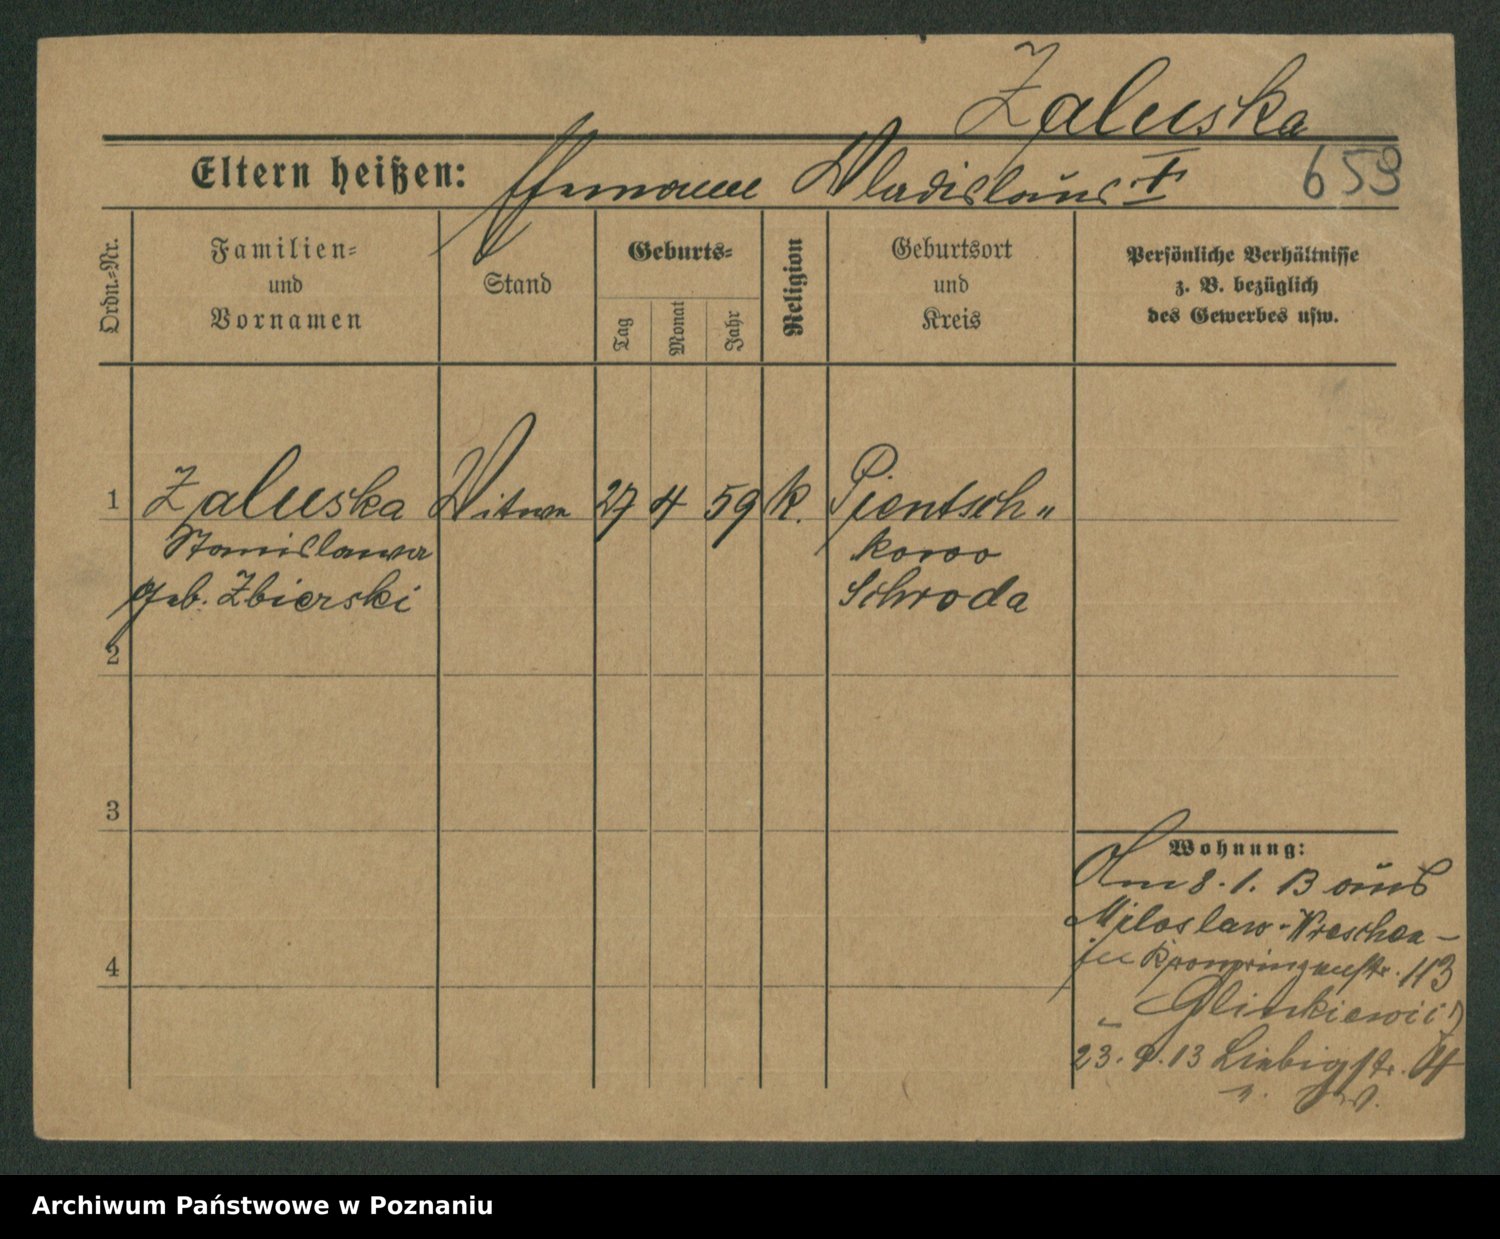 Zaluska
Eltern heißen: Ehemann Wladislaus †
659
Ordn.=Nr.
Familien=
und
Vornamen
Stand
Geburts=
Tag
Monat
Jahr
Religion
Geburtsort
und
Kreis
Persönliche Verhältnisse
z. B. bezüglich
des Gewerbes usw.
1 Zaluska Witwe 27 4 59 k. Pientsch"
Stanislawa kowo
geb. Zbierski Schroda
2
3
4
Wohnung:
Am 8. 1. 13 aus
Miloslaw-Wreschen-
zu Kronprinzenstr. 113
Glinkiewicz
23. 9. 13 Liebigstr. 4